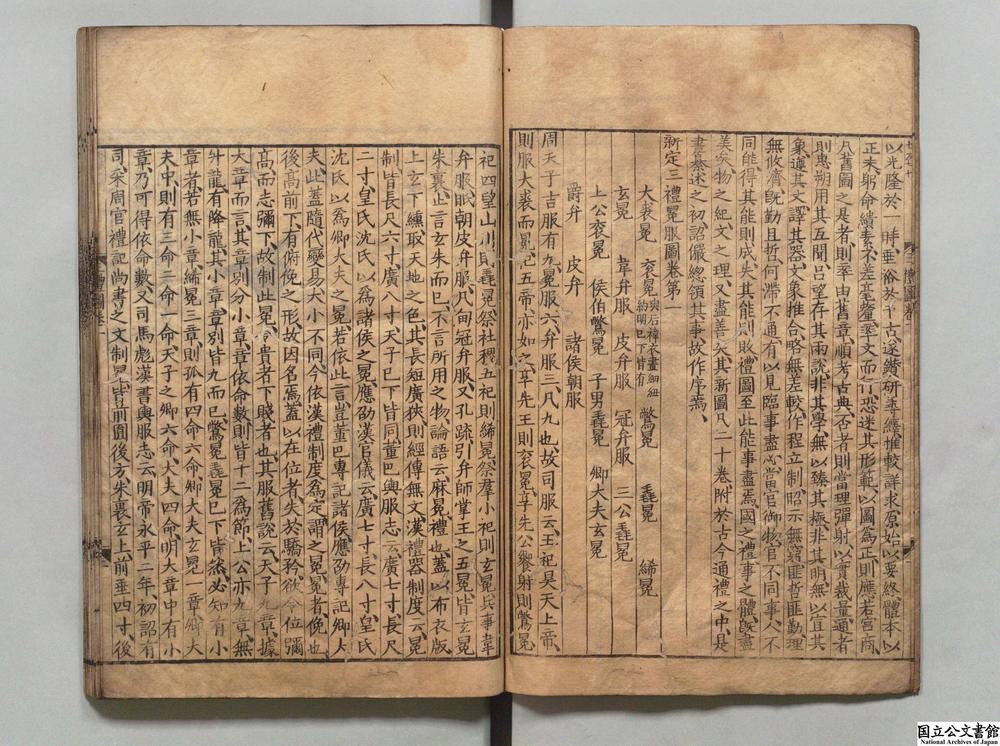 以光隆於一時垂裕於千古遂鑽研五經推較詳求原始以要終體本以
正末躬命繢素不差毫釐率文而行恐迷其形範以圖為正則應若宮商
凡舊圖之是者則率由舊章順考古典否者則當理彈射以實裁量通者
則惠朔用其互聞呂望存其兩說非其學無以臻其極非其明無以宣其
象遵其文譯其器文象推合略無差較作程立制昭示無窮匪哲匪勤理
無攸濟既勤且哲何滯不通有以見臨事盡心當官御物官不同事人不
同能得其能則成失其能則敗禮圖至此能事盡焉國之禮事之體既盡
美矣物之紀文之理又盡善矣其新圖凡二十卷附於古今通禮之中是
書纂述之初詔儼總領其事故作序焉
新定三禮冕服圖卷第一
大裘冕 袞冕 與后褘衣畫細紐約明已下皆有 鷩冕 毳冕 絺冕
玄冕 韋弁服 皮弁服 冠弁服 三公毳冕
上公袞冕 侯伯鷩冕 子男毳冕 卿大夫玄冕
爵弁 皮弁 諸侯朝服
周天子吉服有九冕服六弁服三凡九也故司服云王祀昊天上帝
則服大裘而冕祀五帝亦如之享先王則袞冕享先公饗射則鷩冕
祀四望山川則毳冕祭社稷五祀則絺冕祭羣小祀則玄冕兵事韋
弁服眂朝皮弁服凡甸冠弁服又孔疏引弁師掌王之五冕皆玄冕
朱裏止言玄朱而已不言所用之物論語云麻冕禮也蓋以布衣版
上玄下纁取天地之色其長短廣狹則經傳無文漢禮器制度云冕
制皆長尺六寸廣八寸天子已下皆同董巴輿服志云廣七寸長尺
二寸皇氏沈氏以為諸侯之冕應劭漢官儀云廣七寸長八寸皇氏
沈氏以為卿大夫之冕若依此言豈董巴專記諸侯應劭專記卿大
夫此蓋隨代變易大小不同今依漢禮制度為定謂之冕冕者俛也
後高前下有俯俛之形故因名焉蓋以在位者失於驕矜欲令位彌
高而志彌下故制此冕令貴者下賤者也其服舊說云天子九章據
大章而言其章別分小章章依命數則皆十二為節上公亦九章無
升龍有降龍其小章章別皆九而已鷩冕毳冕已下皆然必知有小
章者若無小章絺冕三章則孤有四命六命卿大夫玄冕一章卿大
夫中則有三命二命一命天子之卿六命大夫四命明大章中有小
章乃可得依命數又司馬彪漢書輿服志云明帝永平二年初詔有
司采周官禮記尚書之文制冕皆前圓後方朱裏玄上前垂四寸後
国立公文書館
National Archives of Japan